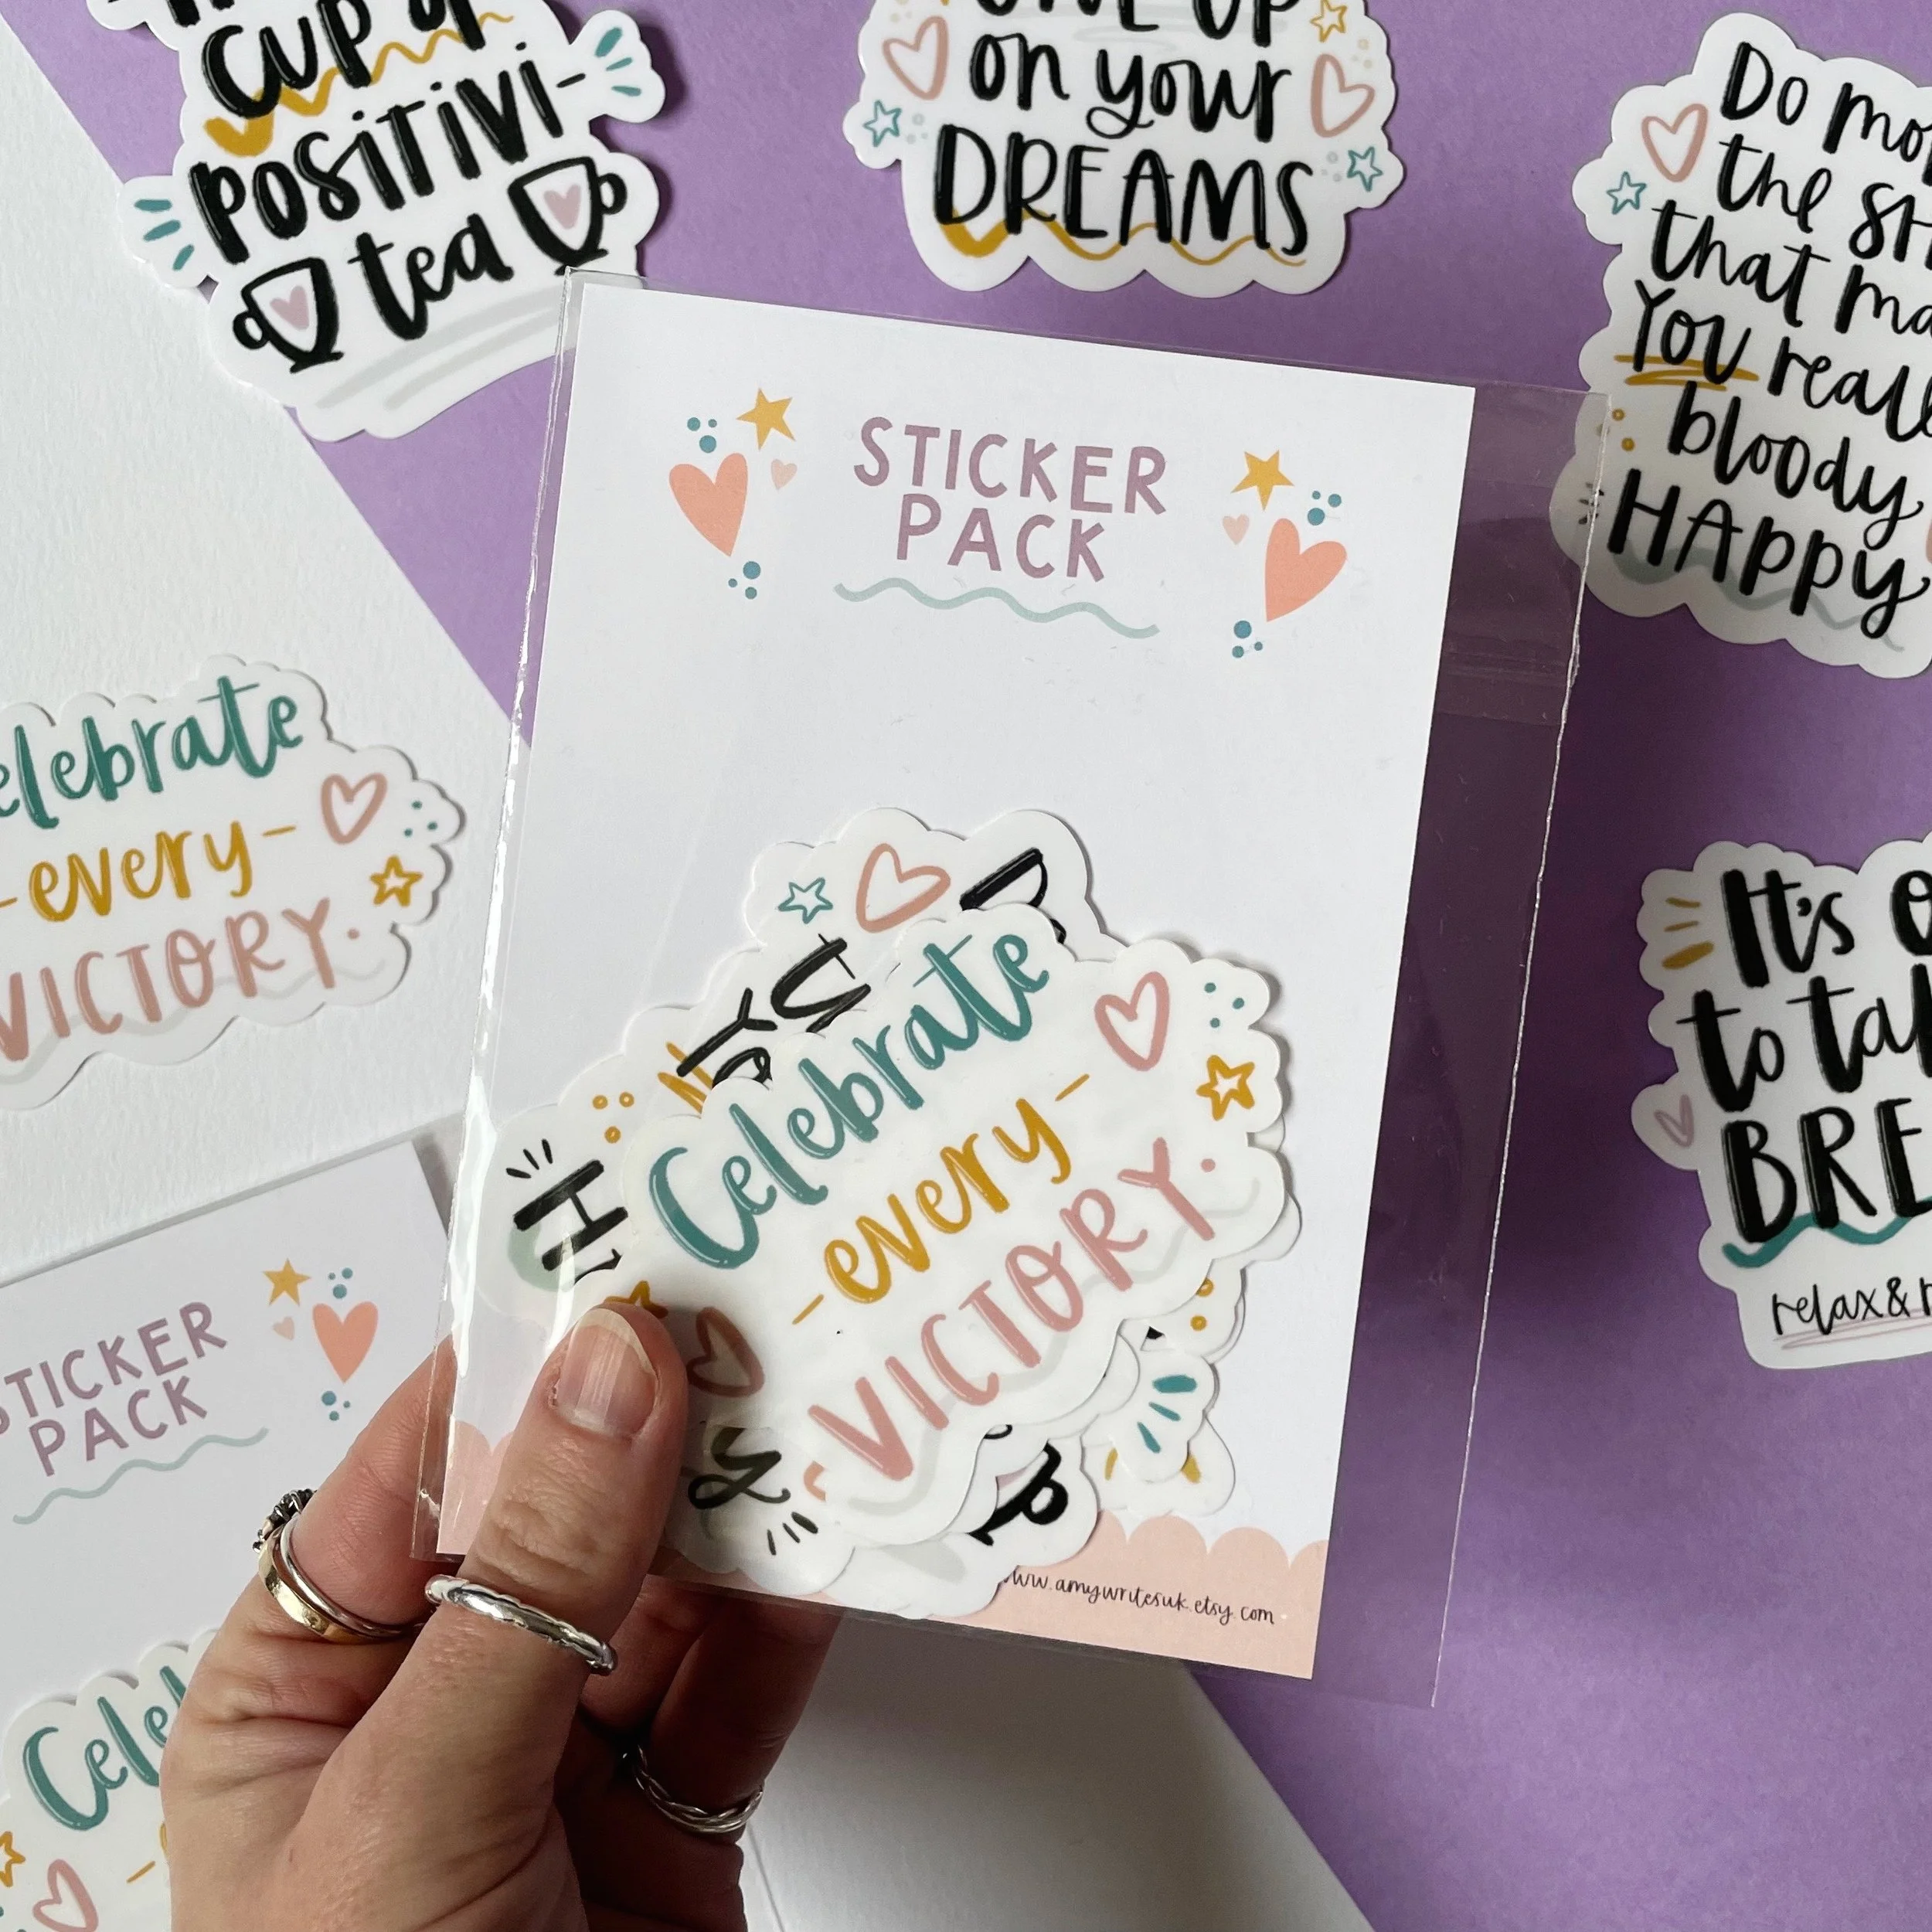 CUP of
POSITIVI-
tea
on your
DREAMS
Do
the
that
You
bloody
HAPPY
STICKER
PACK
Celebrate
-every-
VICTORY.
Celebrate
-every-
VICTORY.
www.amywritesuk.etsy.com
It's
to
relax &
STICKER
PACK